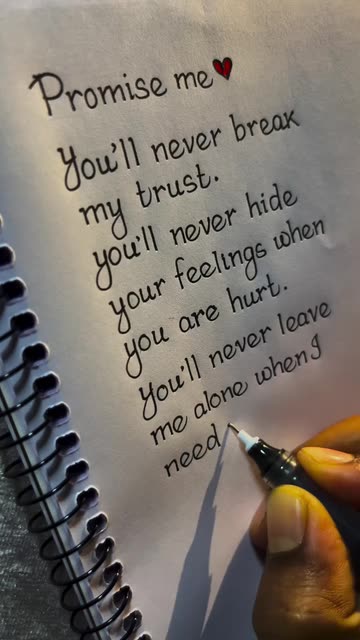 Promise me❤
You'll never break
my trust.
you'll never hide
your feelings when
you are hurt.
You'll never leave
me alone when I
need